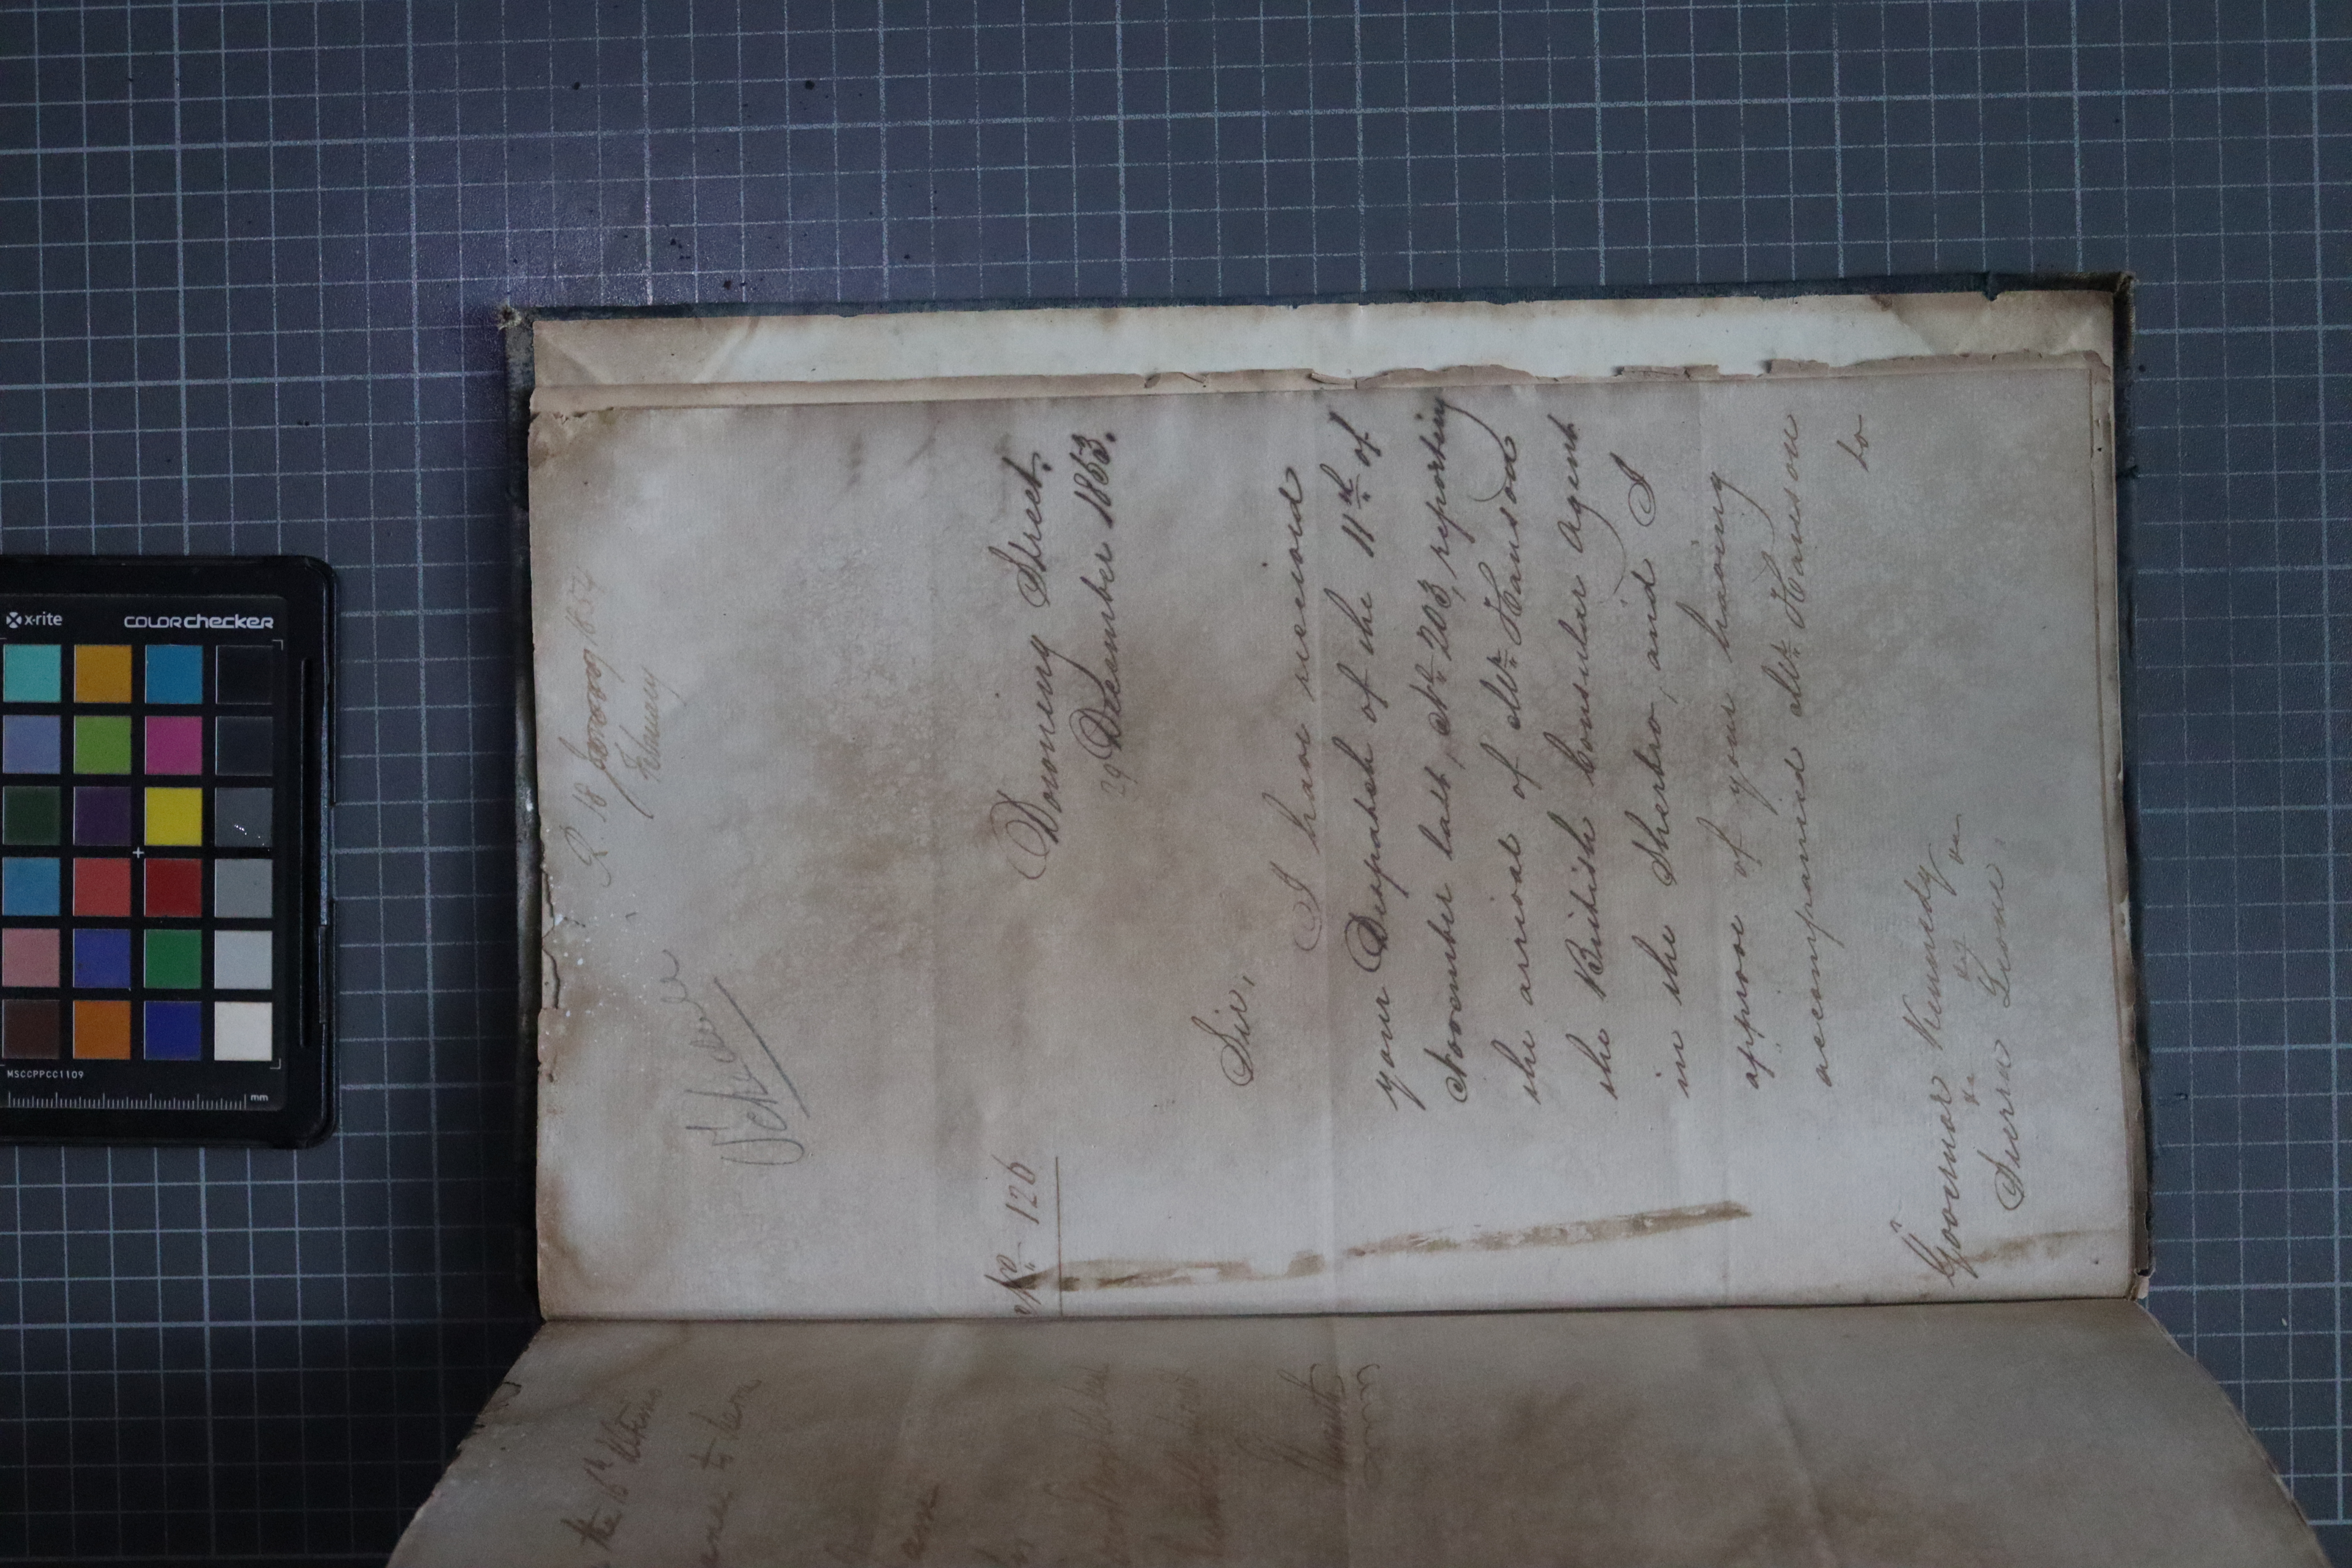 R. 18 January 1854
February
No 126
Downing Street.
29 December 1853.
Sir,
I have received
your Despatch of the 11th of
November last, No 203, reporting
the arrival of Mr. Hanson
the British Consular Agent
in the Sherbro, and I
approve of your having
accompanied Mr. Hanson
to
Governor Kennedy
&c &c &c
Sierra Leone.
the 16th Ultimo
am
humble Servant
x-rite
COLORchecker
MSCCPPCC1109
mm